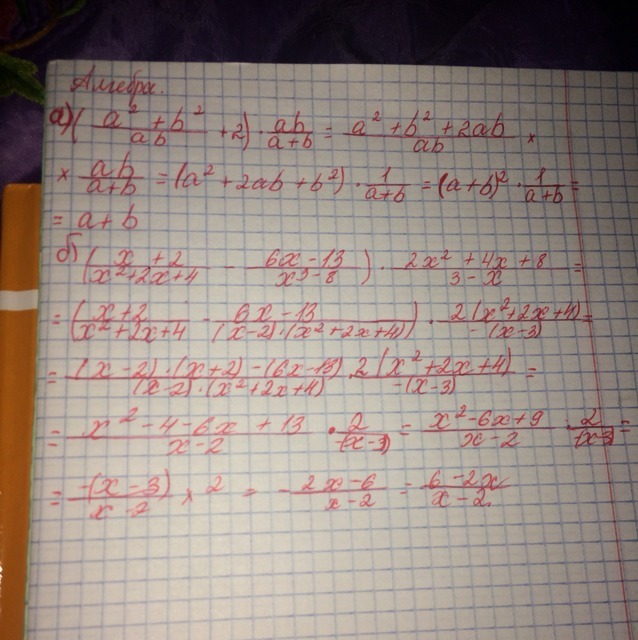 Алгебра.
а) ((a² + b²)/(ab) + 2) · (ab)/(a+b) = (a² + b² + 2ab)/(ab) ×
× (ab)/(a+b) = (a² + 2ab + b²) · 1/(a+b) = (a+b)² · 1/(a+b) =
= a + b
б) ((x + 2)/(x²+2x+4) - (6x - 13)/(x³ - 8)) · (2x² + 4x + 8)/(3 - x) =
= ((x+2)/(x²+2x+4) - (6x - 13)/((x-2)·(x²+2x+4))) · (2(x²+2x+4))/(-(x-3)) =
= ((x-2)·(x+2) - (6x-13))/((x-2)·(x²+2x+4)) · (2(x²+2x+4))/(-(x-3)) =
= (x² - 4 - 6x + 13)/(x-2) · 2/(-(x-3)) = (x² - 6x + 9)/(x-2) · 2/(-(x-3)) =
= (-(x-3))/(x-2) × 2 = - (2x-6)/(x-2) = (6-2x)/(x-2).